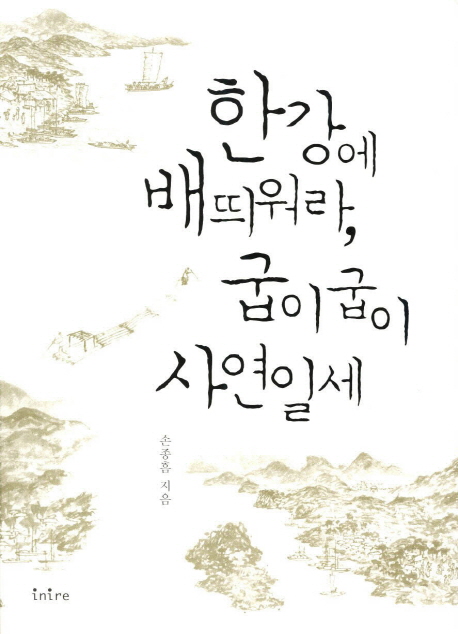 한강에
배 띄워라,
굽이굽이
사연일세
손종흠 지음
inire